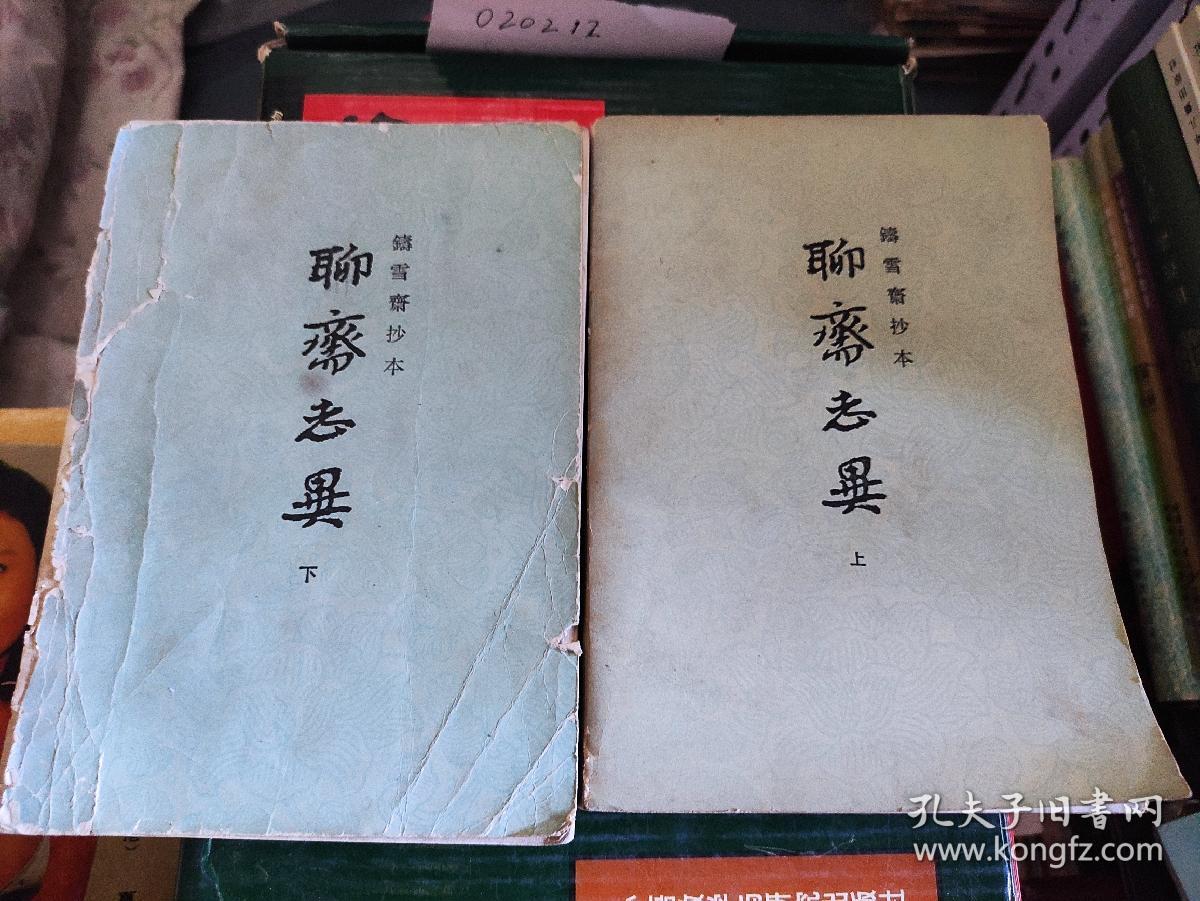 020212
鑄雪齋抄本
聊齋志異
下
鑄雪齋抄本
聊齋志異
上
孔夫子旧书网
www.kongfz.com